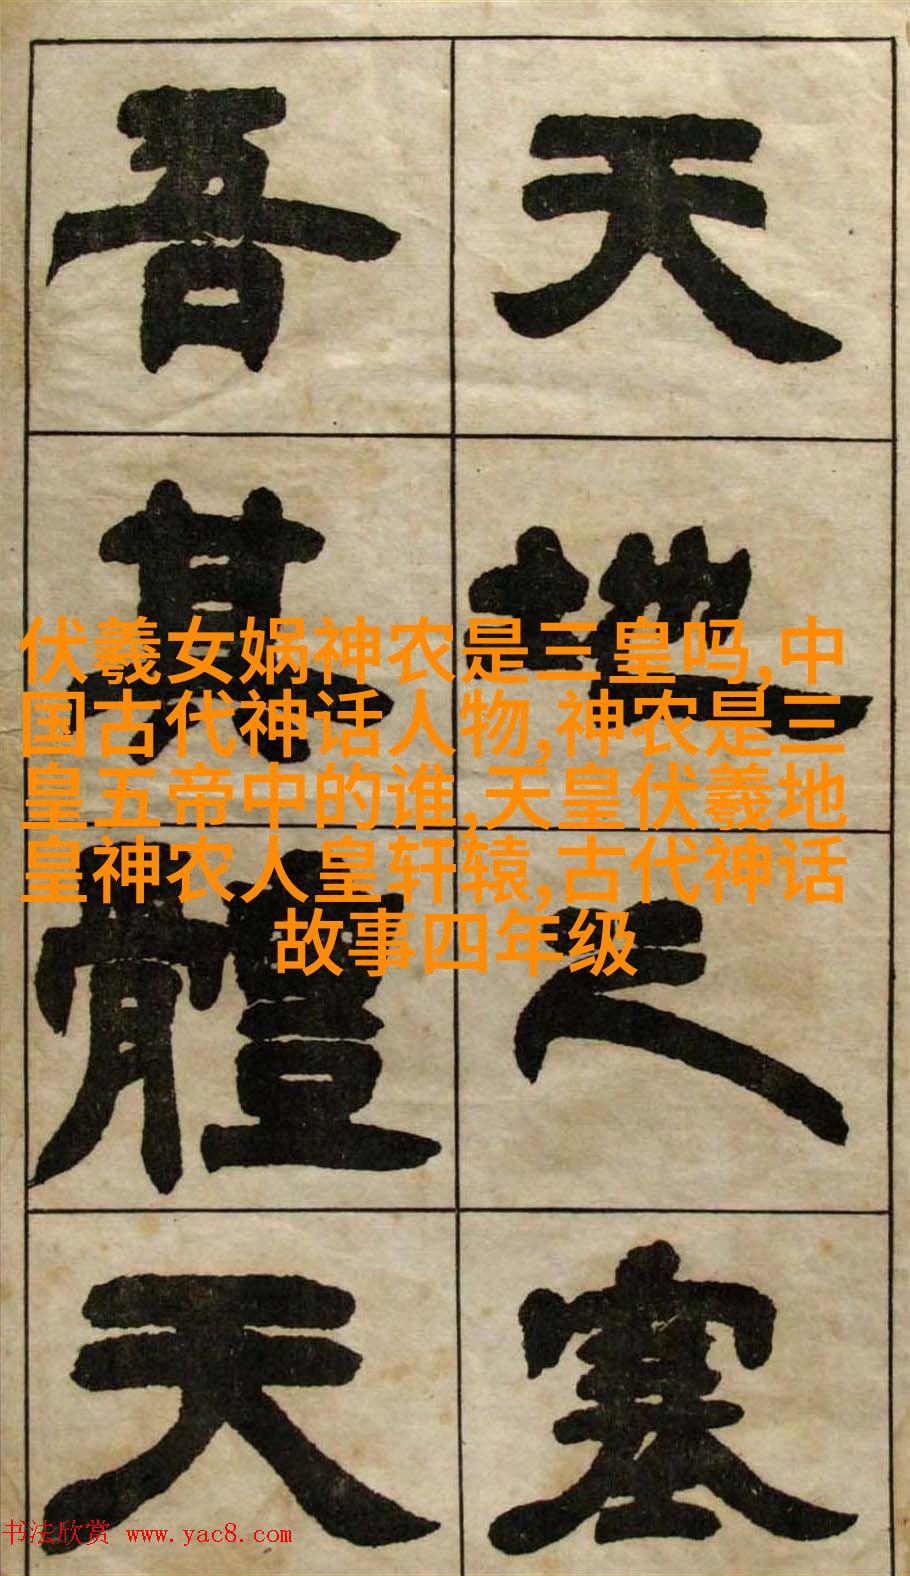 天地之塞
吾其體天
伏羲女娲神农是三皇吗,中
国古代神话人物,神农是三
皇五帝中的谁,天皇伏羲地
皇神农人皇轩辕,古代神话
故事四年级
书法欣赏 www.yac8.com